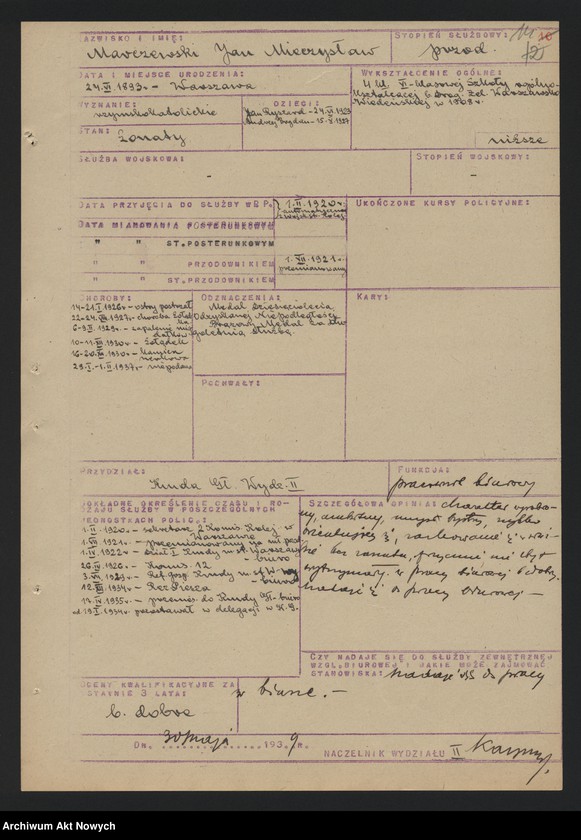 NAZWISKO I IMIĘ:
Marczewski Jan Mieczysław
STOPIEŃ SŁUŻBOWY:
przod.
DATA I MIEJSCE URODZENIA:
24.VI 1893r. - Warszawa
WYKSZTAŁCENIE OGÓLNE:
4 kl. VI-klasowej Szkoły ogólno-
kształcącej b. Drogi Żel. Warszawsko
Wiedeńskiej w 1908r.
niższe
WYZNANIE:
rzymskokatolickie
DZIECI:
Jan Ryszard - 24.VI 1923
Andrzej Bogdan - 15.X 1927
STAN:
żonaty
SŁUŻBA WOJSKOWA:
-
STOPIEŃ WOJSKOWY:
-
DATA PRZYJĘCIA DO SŁUŻBY W P.P.
1.II.1920r.
DATA MIANOWANIA POSTERUNKOWYM
" " ST.POSTERUNKOWYM
" " PRZODOWNIKIEM
1.VII.1921r.
przemianowany
" " ST.PRZODOWNIKIEM
UKOŃCZONE KURSY POLICYJNE:
CHOROBY:
14-21.I 1926r. - ostry postrzał
22-24.VII.1927r. - choroba żołąd
ka
6-9.II.1929r. - zapalenie mig
dałków
10-11.VIII.1930r. - żołądek
16-20.VIII.1930r. - kamica
nerkowa
29.I.-1.II.1937r. - niepodano
ODZNACZENIA:
Medal Dziesięciolecia
Odzyskanej Niepodległości
Brązowy Medal za długoletnią służbę.
KARY:
POCHWAŁY:
PRZYDZIAŁ:
Kmda Gł. Wydz. II
FUNKCJA:
pracownik biurowy
DOKŁADNE OKREŚLENIE CZASU I RO-
DZAJU SŁUŻBY W POSZCZEGÓLNYCH
JEDNOSTKACH POLIC.:
1.II.1920r. - sekretarz 2 Komis. Kolej. w
Warszawie
1.VII 1921r. - przemianowany na nad post
1.IV.1922r. - Ekset. I. Kmdy m. st. Warszawy
biuro
26.IV.1926r. - Komis. 12
3.VII.1929r. - Ref. Gosp. Kmdy m. st. W-wy
biuro
12.VIII.1934r. - Rez. Piesza
19.IV.1935r. - przenies. do Kmdy Gł. - biuro
od 19.I.1934r. - pozostawał w delegacji w K.G.
SZCZEGÓŁOWA OPINIA: charakter wyrobio-
ny, ambitny, umysł bystry, szybko
orientujący się, zachowanie się w służ-
bie bez zarzutu,
wytrzymały. w pracy biurowej b. dobry.
nadaje się do pracy biurowej -
CZY NADAJE SIĘ DO SŁUŻBY ZEWNĘTRZNEJ
WZGL. BIUROWEJ I JAKIE MOŻE ZAJMOWAĆ
STANOWISKA: nadaje się do pracy
w biurze. -
OCENY KWALIFIKACYJNE ZA
OSTATNIE 3 LATA:
b. dobra
DN. 30 maja 1939 R.
NACZELNIK WYDZIAŁU II
Archiwum Akt Nowych